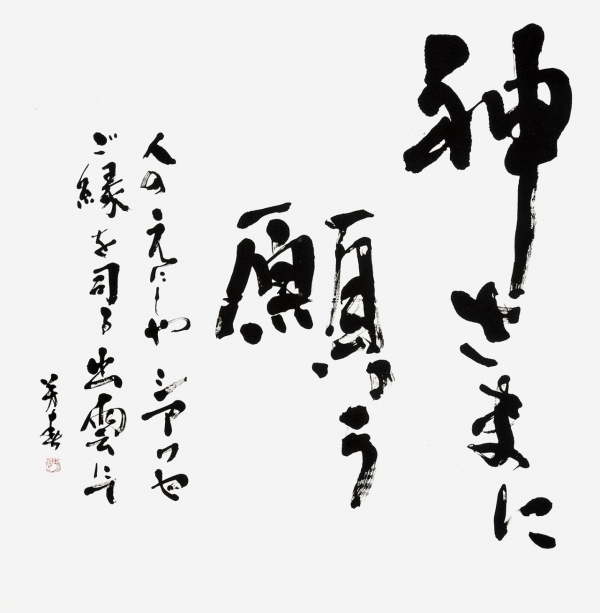 神さまに
願う
人のえにしや シアワセ
ご縁を司る出雲にて
芳春